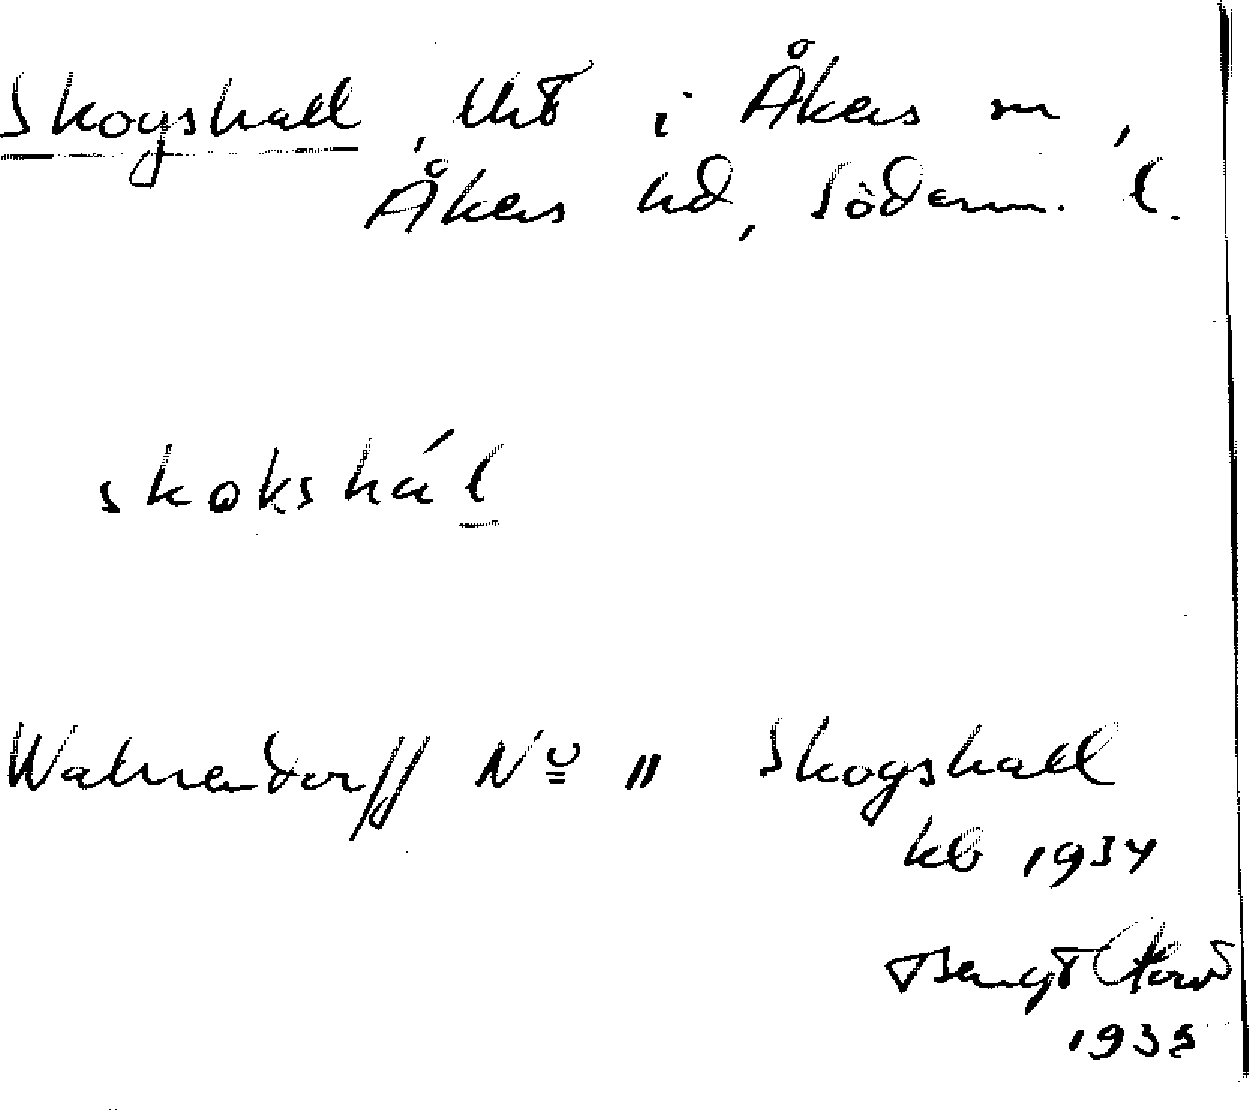 Skogshall, tht i Åkers sn,
Åkers hd, Söderm. l.
skokshál
Wahrendorff No 11 Skogshall
kb 1934
Bengt
1935